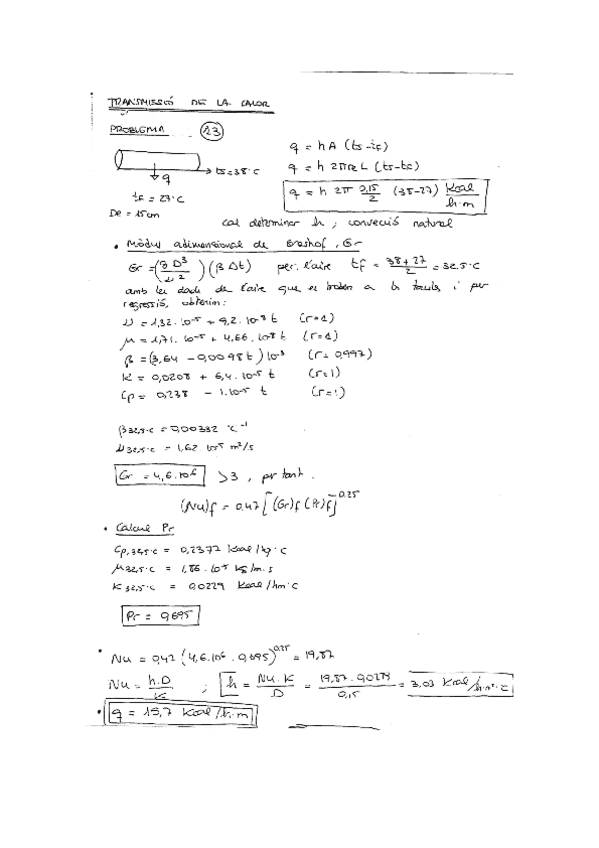 TRANSMISSIÓ DE LA CALOR
PROBLEMA 23
q = h A (ts-tf)
→ ts=38°C
q = h 2πRL (ts-tf)
q
tf = 27°C
q = h 2π 0,15/2 (38-27) Kcal/h·m
De = 15cm
cal determinar h ; convecció natural
• Mòdul adimensional de Grashof, Gr
Gr = (g D³/ν²) (β Δt) per l'aire tf = 38+27/2 = 32.5°C
amb les dades de l'aire que es troben a la taula, i per
regressió, obtenim:
ν = 1,32·10⁻⁵ + 9,2·10⁻⁸ t (r=1)
μ = 1,71·10⁻⁵ + 4,66·10⁻⁸ t (r=1)
β = (3,64 - 0,0098t) 10⁻³ (r=0,997)
K = 0,0208 + 6,4·10⁻⁵ t (r=1)
Cp = 0,238 - 1·10⁻⁵ t (r=1)
β32,5°C = 0,00332 °C⁻¹
ν32,5°C = 1,62 10⁻⁵ m²/s
Gr = 4,6·10⁶ >3, per tant.
(Nu)f = 0,47 [(Gr)f (Pr)f]^0.25
• Càlcul Pr
Cp,32,5°C = 0,2377 Kcal/kg·°C
μ32,5°C = 1,86·10⁻⁵ kg/m·s
K32,5°C = 0,0229 Kcal/hm°C
Pr = 0,695
• Nu = 0,47 (4,6·10⁶ · 0,695)^0,25 = 19,87
Nu = h·D/K ; h = Nu·K/D = 19,87·0,0279/0,15 = 3,03 Kcal/h·m²·°C
• q = 15,7 Kcal/h·m